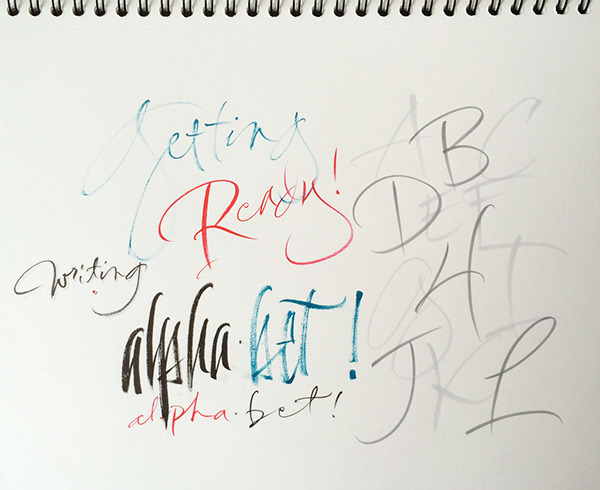 Getting
Ready!
writing
alpha·bet!
alpha·bet!
A B C
D E F
G H I
J K L